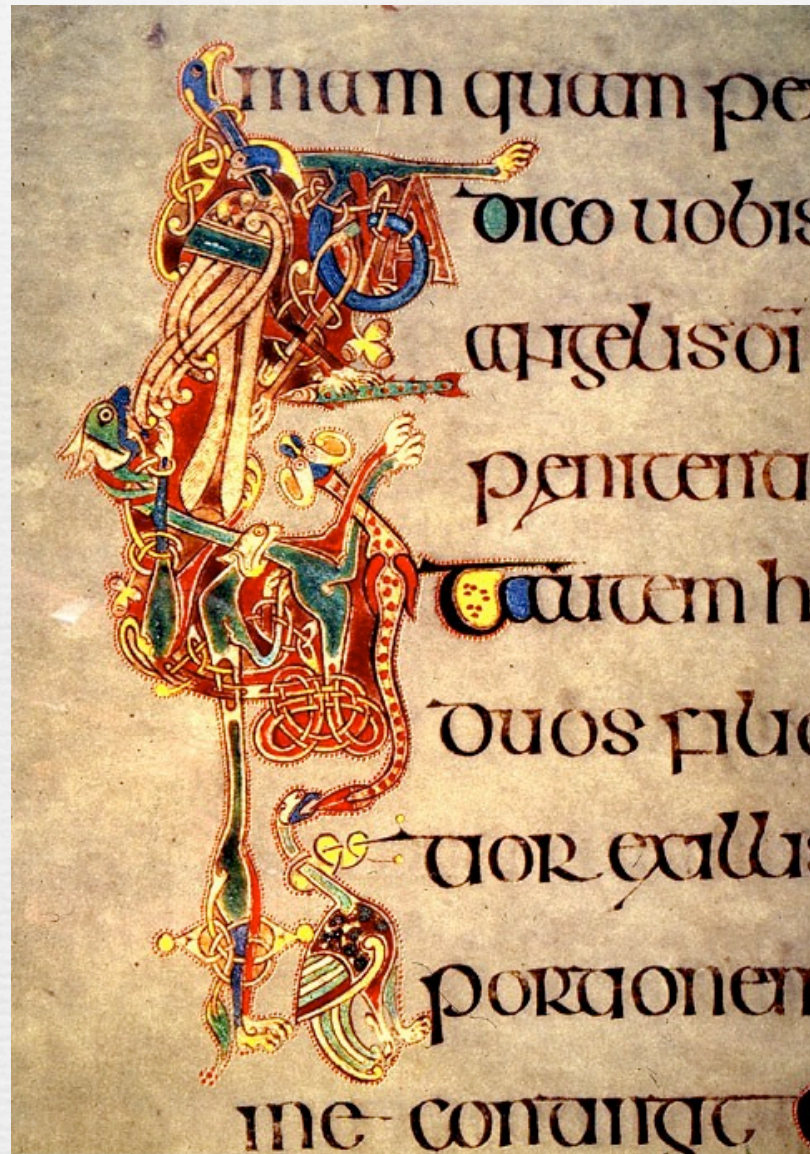 mam quam pe
ITA dico uobis
angelis dī
penitentia
AIT autem h
duos filio
tior exillis
portionem
me contingit